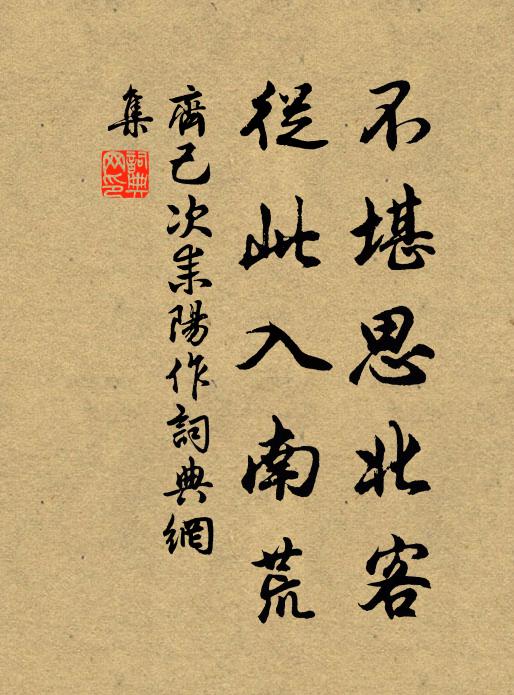 不堪思北客
從此入南荒
齊己次耒陽作詞典網
集
詞典
网印